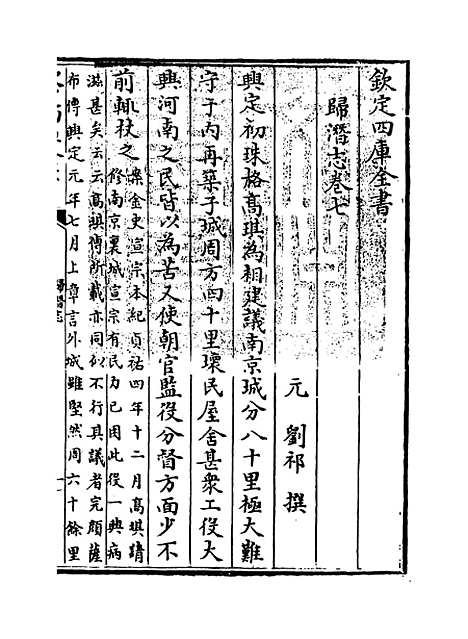 欽定四庫全書
歸潛志卷七
元 劉祁 撰
興定初珠格髙琪為相建議南京城分八十里極大難
守于内再築子城周方四十里壊民屋舍甚衆工役大
興河南之民皆以為苦又使朝官監役分督方面少不
前輙杖之
案金史宣宗本紀貞祐四年十二月髙琪請
修南京裏城宣宗有民力已困此役一興病
滋甚矣云云髙琪傳所載亦同似不行其議者完顔薩
布傳興定元年七月上章言外城雖堅然周六十餘里
歸潛志